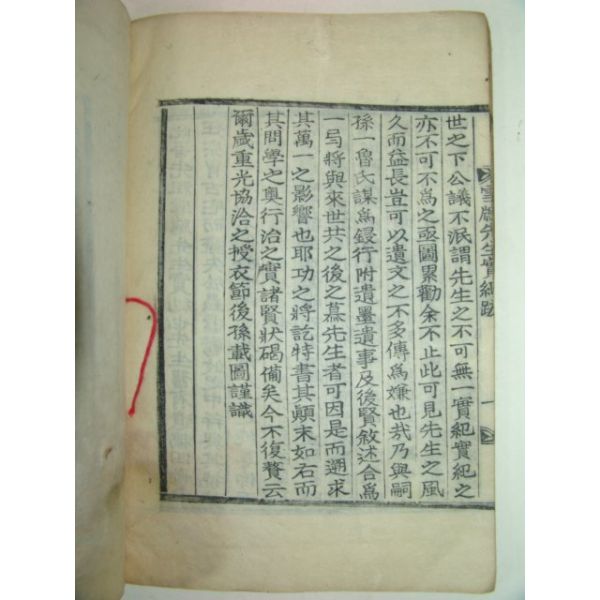 世之下公議不泯謂先生之不可無一實紀實紀之
亦不可不為之亟圖累勸余不止此可見先生之風
久而益長豈可以遺文之不多傳為嫌也哉乃與嗣
孫一魯氏謀為鋟行附遺墨遺事及後賢敘述合為
一弓將與來世共之後之慕先生者可因是而遡求
其萬一之影響也耶功之將訖特書其顛末如右而
其問學之奧行治之實諸賢狀碣備矣今不復贅云
爾歲重光協洽之授衣節後孫載圖謹識
先生實紀跋
一